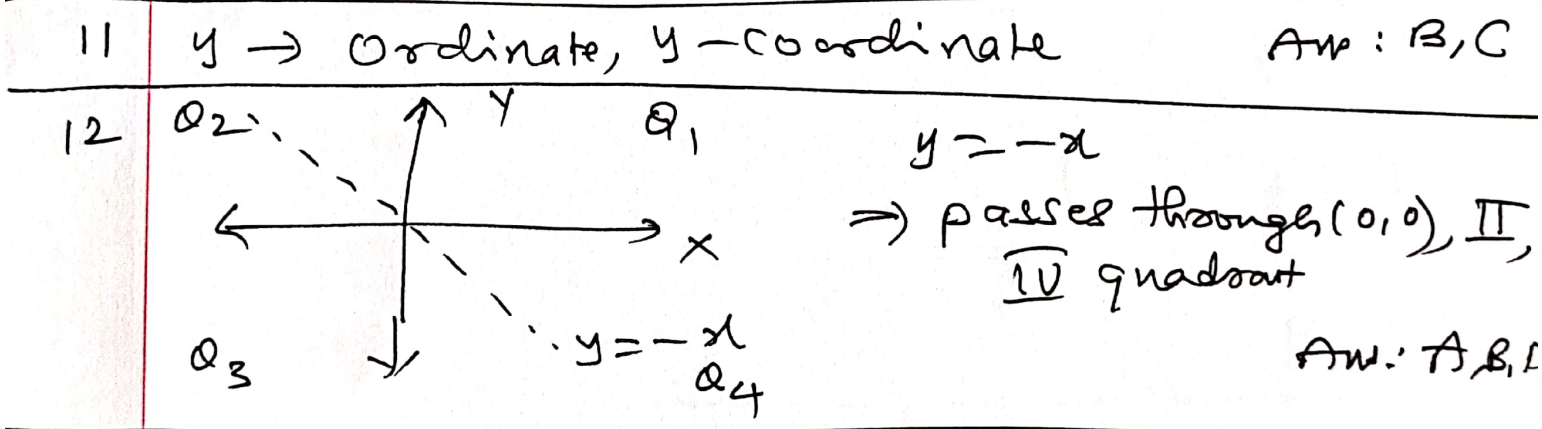 11 y → Ordinate, y-coordinate Ans : B, C
12 Q2 Y Q1
y = -x
⇒ passes through (0,0), II,
X
IV quadrant
y = -x
Q3 Q4
Ans: A, B,